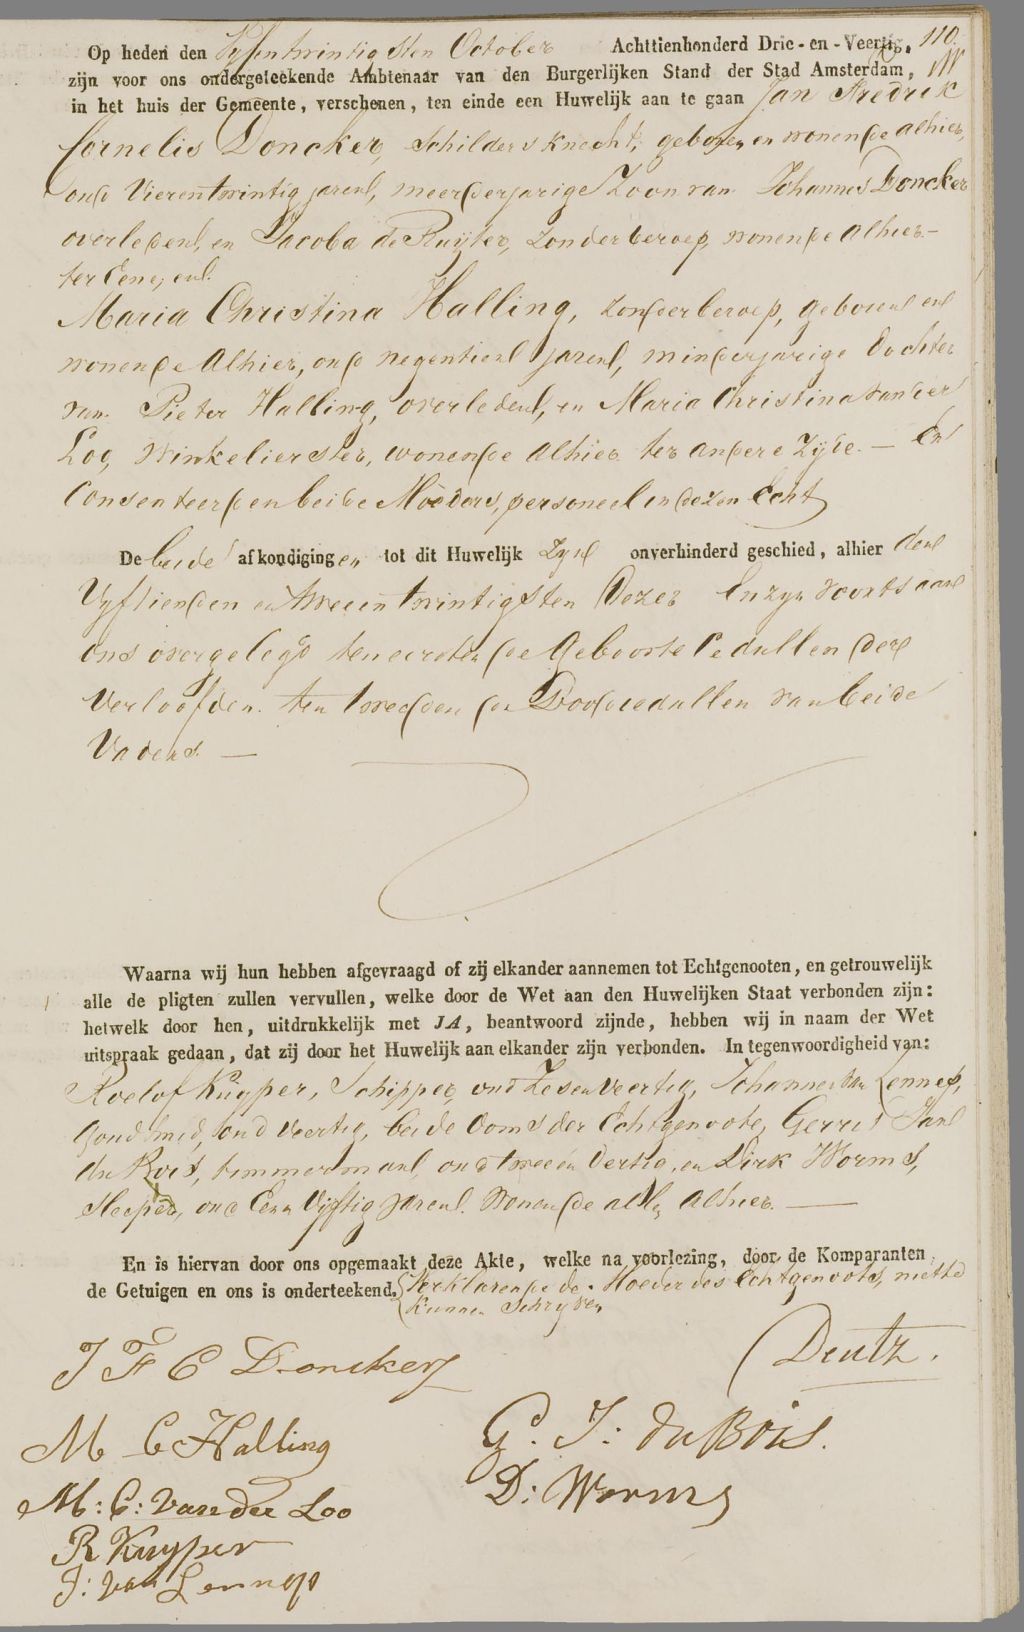 Op heden den Vyfentwintigsten October Achttienhonderd Drie-en-Veertig, 110.
zijn voor ons ondergeteekende Ambtenaar van den Burgerlijken Stand der Stad Amsterdam,
in het huis der Gemeente, verschenen, ten einde een Huwelijk aan te gaan Jan Fredrik
Cornelis Doncker, Schildersknecht, geboren en wonende alhier,
oud Vierentwintig jaren, meerderjarige Zoon van Johannes Doncker
overleden, en Jacoba de Ruyter, zonder beroep, wonende alhier –
ter Eene, en
Maria Christina Halling, zonder beroep, geboren en
wonende Alhier, oud negentien jaren, minderjarige Dochter
van Pieter Halling, overleden, en Maria Christina van der
Loo, Winkelierster, wonende Alhier ter andere Zyde. — En
Consenteerden beide Moeders, personeel in dezen Echt
De beide afkondigingen tot dit Huwelijk zyn onverhinderd geschied, alhier den
Vyftienden en tweeentwintigsten Dezer En zyn voorts aan
ons overgelegd ten eersten de Geboorte Cedullen der
Verloofden. ten tweeden de Doodcedullen van beide
Vaders. —
Waarna wij hun hebben afgevraagd of zij elkander aannemen tot Echtgenooten, en getrouwelijk
alle de pligten zullen vervullen, welke door de Wet aan den Huwelijken Staat verbonden zijn:
hetwelk door hen, uitdrukkelijk met JA, beantwoord zijnde, hebben wij in naam der Wet
uitspraak gedaan, dat zij door het Huwelijk aan elkander zijn verbonden. In tegenwoordigheid van:
Roelof Kuyper, Schipper, oud Zesenveertig, Johannes van Lennep,
Goudsmid, oud Veertig, beide Ooms der Echtgenoote, Gerrit Jan
du Bois, timmerman, oud tweeen Dertig, en Dirk Worms,
Sleeper, oud Een en Vyftig jaren. Wonende allen Alhier. —
En is hiervan door ons opgemaakt deze Akte, welke na voorlezing, door de Komparanten
de Getuigen en ons is onderteekend. Verklarende de Moeder des Echtgenoots, niet te
kunnen Schryven
J F C Doncker
Deutz.
M C Halling
G. J: du Bois.
M: C: van der Loo
D: Worms
R Kuyper
J: van Lennep